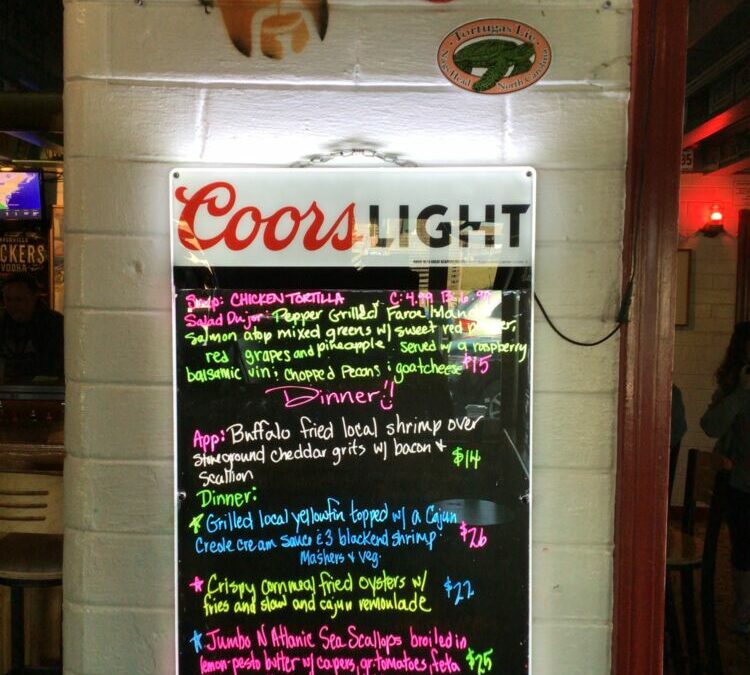 Tortugas' Lie
Nags Head North Carolina
Coors LIGHT
CKERS
VODKA
35
Soup: CHICKEN TORTILLA C: 4.99 B: 6.99
Salad Dujor: Pepper Grilled Faroe Island
Salmon atop mixed greens w/ sweet red pepper,
red grapes and pineapple. served w/ a raspberry
balsamic vin; chopped Pecans & goatcheese $15
Dinner!!
App: Buffalo fried local shrimp over
Stoneground cheddar grits w/ bacon &
Scallion $14
Dinner:
Grilled local yellowfin topped w/ a Cajun
Creole cream sauce & 3 blackend shrimp. $26
Mashers & Veg.
Crispy cornmeal fried oysters w/
fries and slaw and cajun remoulade $22
Jumbo N Atlanic Sea Scallops broiled in
lemon-pesto butter w/ capers, gr. tomatoes, feta $25